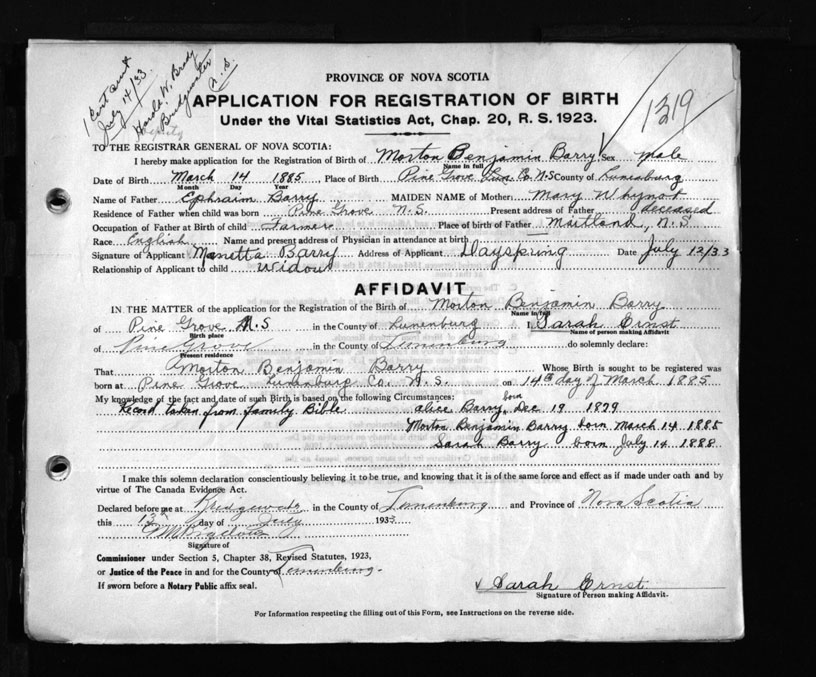 1 Cert sent
July 14/33
Harold W. Brady
Bridgewater
N.S.
1319
PROVINCE OF NOVA SCOTIA
APPLICATION FOR REGISTRATION OF BIRTH
Under the Vital Statistics Act, Chap. 20, R. S. 1923.
TO THE REGISTRAR GENERAL OF NOVA SCOTIA:
I hereby make application for the Registration of Birth of Morton Benjamin Barry Sex male
Name in full
Date of Birth March 14 1885 Place of Birth Pine Grove Lun. Co. N.S County of Lunenburg
Month Day Year
Name of Father Ephraim Barry MAIDEN NAME of Mother: Mary Whynot
Residence of Father when child was born Pine Grove N.S. Present address of Father deceased
Occupation of Father at Birth of child Farmer Place of birth of Father Maitland, N.S
Race English Name and present address of Physician in attendance at birth
Signature of Applicant Manetta Barry Address of Applicant Dayspring Date July 12/33
Relationship of Applicant to child widow
AFFIDAVIT
IN THE MATTER of the application for the Registration of the Birth of Morton Benjamin Barry
Name in full
of Pine Grove N.S in the County of Lunenburg I, Sarah Ernst
Birth place Name of person making Affidavit
of Pine Grove in the County of Lunenburg do solemnly declare:
Present residence
That Morton Benjamin Barry Whose Birth is sought to be registered was
born at Pine Grove Lunenburg Co. N.S. on 14th day of March 1885
My knowledge of the fact and date of such Birth is based on the following Circumstances:
Record taken from family Bible Alice Barry, born Dec 19 1879
Morton Benjamin Barry born March 14 1885
Sarah Barry born July 14 1888
I make this solemn declaration conscientiously believing it to be true, and knowing that it is of the same force and effect as if made under oath and by
virtue of The Canada Evidence Act.
Declared before me at Bridgewater in the County of Lunenburg and Province of Nova Scotia
this 13th day of July 1933
Signature of
Commissioner under Section 5, Chapter 38, Revised Statutes, 1923,
or Justice of the Peace in and for the County Lunenburg.
If sworn before a Notary Public affix seal.
Sarah Ernst
Signature of Person making Affidavit.
For Information respecting the filling out of this Form, see Instructions on the reverse side.